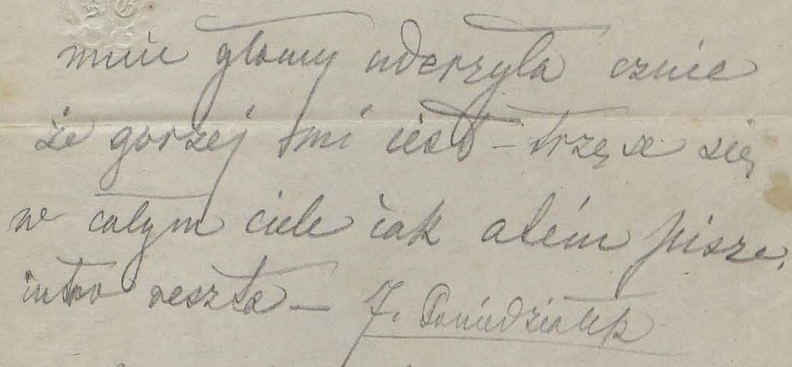 mnie głowy uderzyła czuie
że gorzej mi iest – trzęse się
w całym ciele iak
pisze.
iutro reszta – 7. Poniedziałek